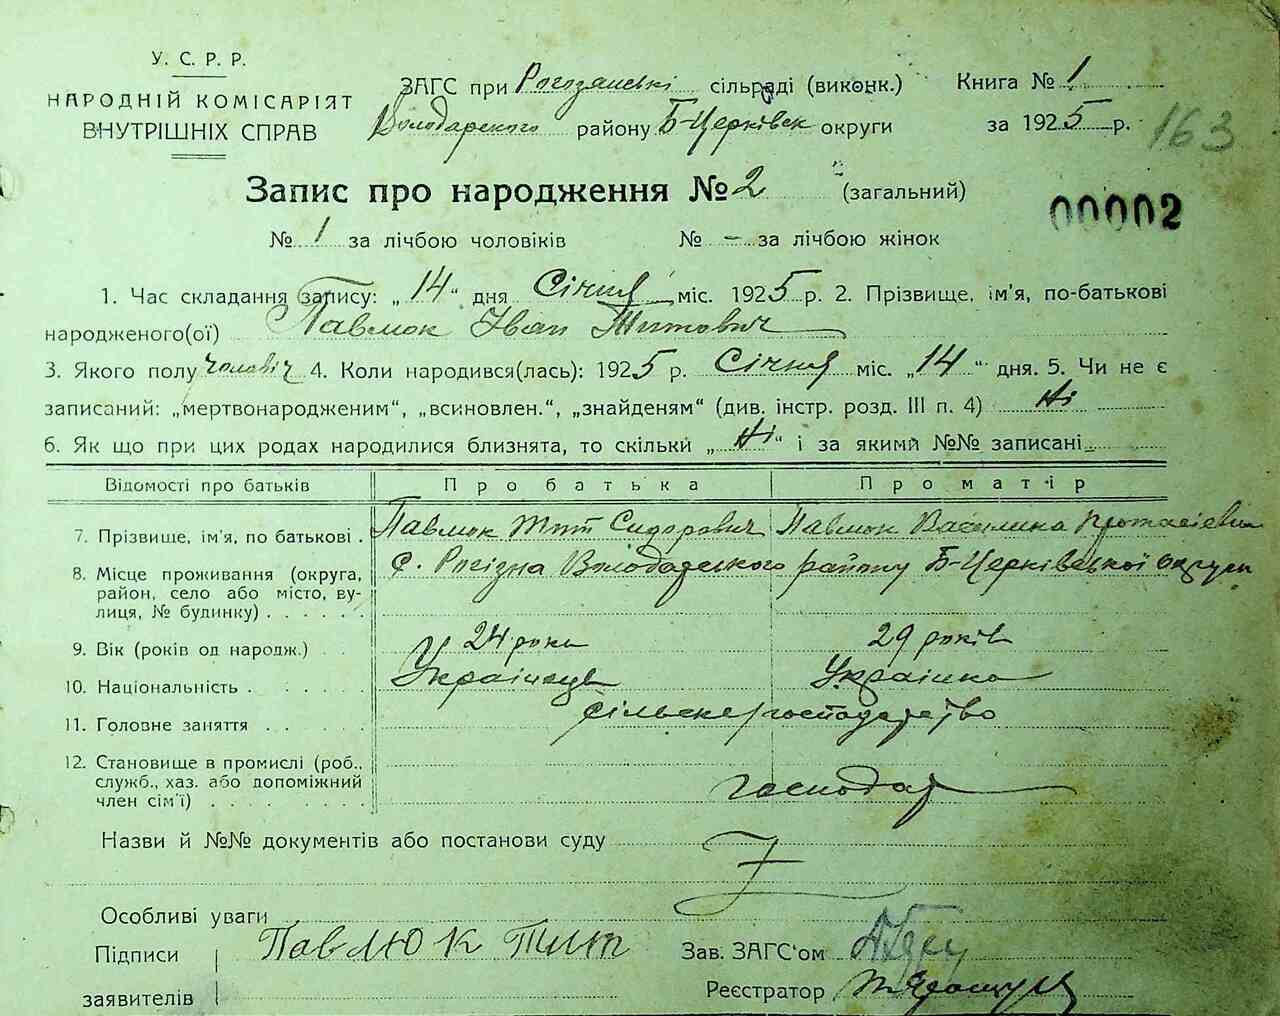 У. С. Р. Р.
НАРОДНІЙ КОМІСАРІЯТ
ВНУТРІШНІХ СПРАВ
ЗАГС при Рогозянські сільраді (виконк.) Книга № 1
Володарского району Б-Церківск округи за 1925 р. 163
Запис про народження № 2 (загальний)
00002
№ 1 за лічбою чоловіків № – за лічбою жінок
1. Час складання запису: „14“ дня Січня міс. 1925 р. 2. Прізвище, ім'я, по-батькові
народженого(ої) Павлюк Іван Титович
3. Якого полу чоловіч 4. Коли народився(лась): 1925 р. Січня міс. „14“ дня. 5. Чи не є
записаний: „мертвонародженим“, „всиновлен.“, „знайденям“ (див. інстр. розд. III п. 4) Ні
6. Як що при цих родах народилися близнята, то скільки „Ні“ і за якими №№ записані
Відомості про батьків Про батька Про матір
7. Прізвище, ім'я, по батькові . Павлюк Тит Сидорович Павлюк Василина Протасіевна
8. Місце проживання (округа, район, село або місто, вулиця, № будинку) . . . . . . с. Рогізна Володарського району Б-Церківської округи
9. Вік (років од народж.) . . 24 роки 29 років
10. Національність . . . . . . Українець Українка
11. Головне заняття . . . . . сільске господарство
12. Становище в промислі (роб., служб., хаз. або допоміжний член сім'ї) . . . . . . . . господар
Назви й №№ документів або постанови суду
Особливі уваги
Підписи Павлюк Тит Зав. ЗАГС'ом
заявителів Реєстратор